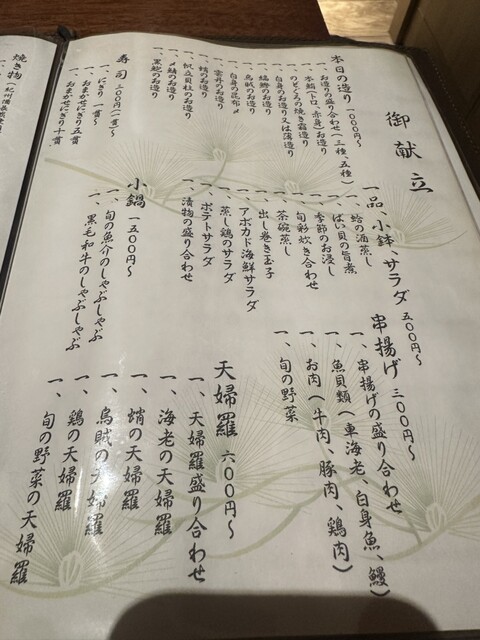 御献立
本日の造り 一〇〇〇円〜
一、お造りの盛り合わせ(三種、五種)
一、本鮪(トロ、赤身)お造り
一、のどぐろの焼き霜造り
一、白身のお造り又は薄造り
一、縞鯵のお造り
一、烏賊のお造り
一、白身の昆布〆
一、雲丹のお造り
一、蛸のお造り
一、帆立貝柱のお造り
一、〆鯖のお造り
一、黒鮑のお造り
寿司 三〇〇円(一貫)〜
一、にぎり一貫〜
一、おまかせにぎり五貫
一、おまかせにぎり十貫
一品、小鉢、サラダ 五〇〇円〜
一、蛤の酒蒸し
一、ばい貝の旨煮
一、季節のお浸し
一、旬彩炊き合わせ
一、茶碗蒸し
一、出し巻き玉子
一、アボカド海鮮サラダ
一、蒸し鶏のサラダ
一、ポテトサラダ
一、漬物の盛り合わせ
小鍋 一五〇〇円〜
一、旬の魚介のしゃぶしゃぶ
一、黒毛和牛のしゃぶしゃぶ
串揚げ 三〇〇円〜
一、串揚げの盛り合わせ
一、魚貝類(車海老、白身魚、鰻)
一、お肉(牛肉、豚肉、鶏肉)
一、旬の野菜
天婦羅 六〇〇円〜
一、天婦羅盛り合わせ
一、海老の天婦羅
一、蛸の天婦羅
一、烏賊の天婦羅
一、鶏の天婦羅
一、旬の野菜の天婦羅
焼き物